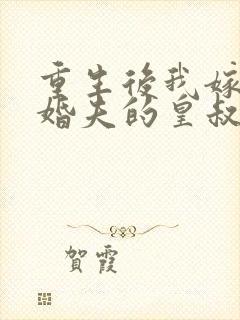 重生後我嫁
婚夫的皇叔
賀霞